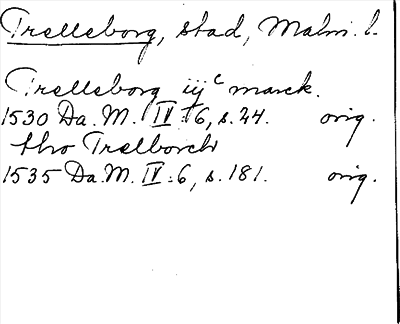 Trelleborg, stad, Malm. l.
Trelleborg iij c marck.
1530 Da. M. IV : 6, s. 24. orig.
tho Trelborch
1535 Da. M. IV : 6, s. 181. orig.